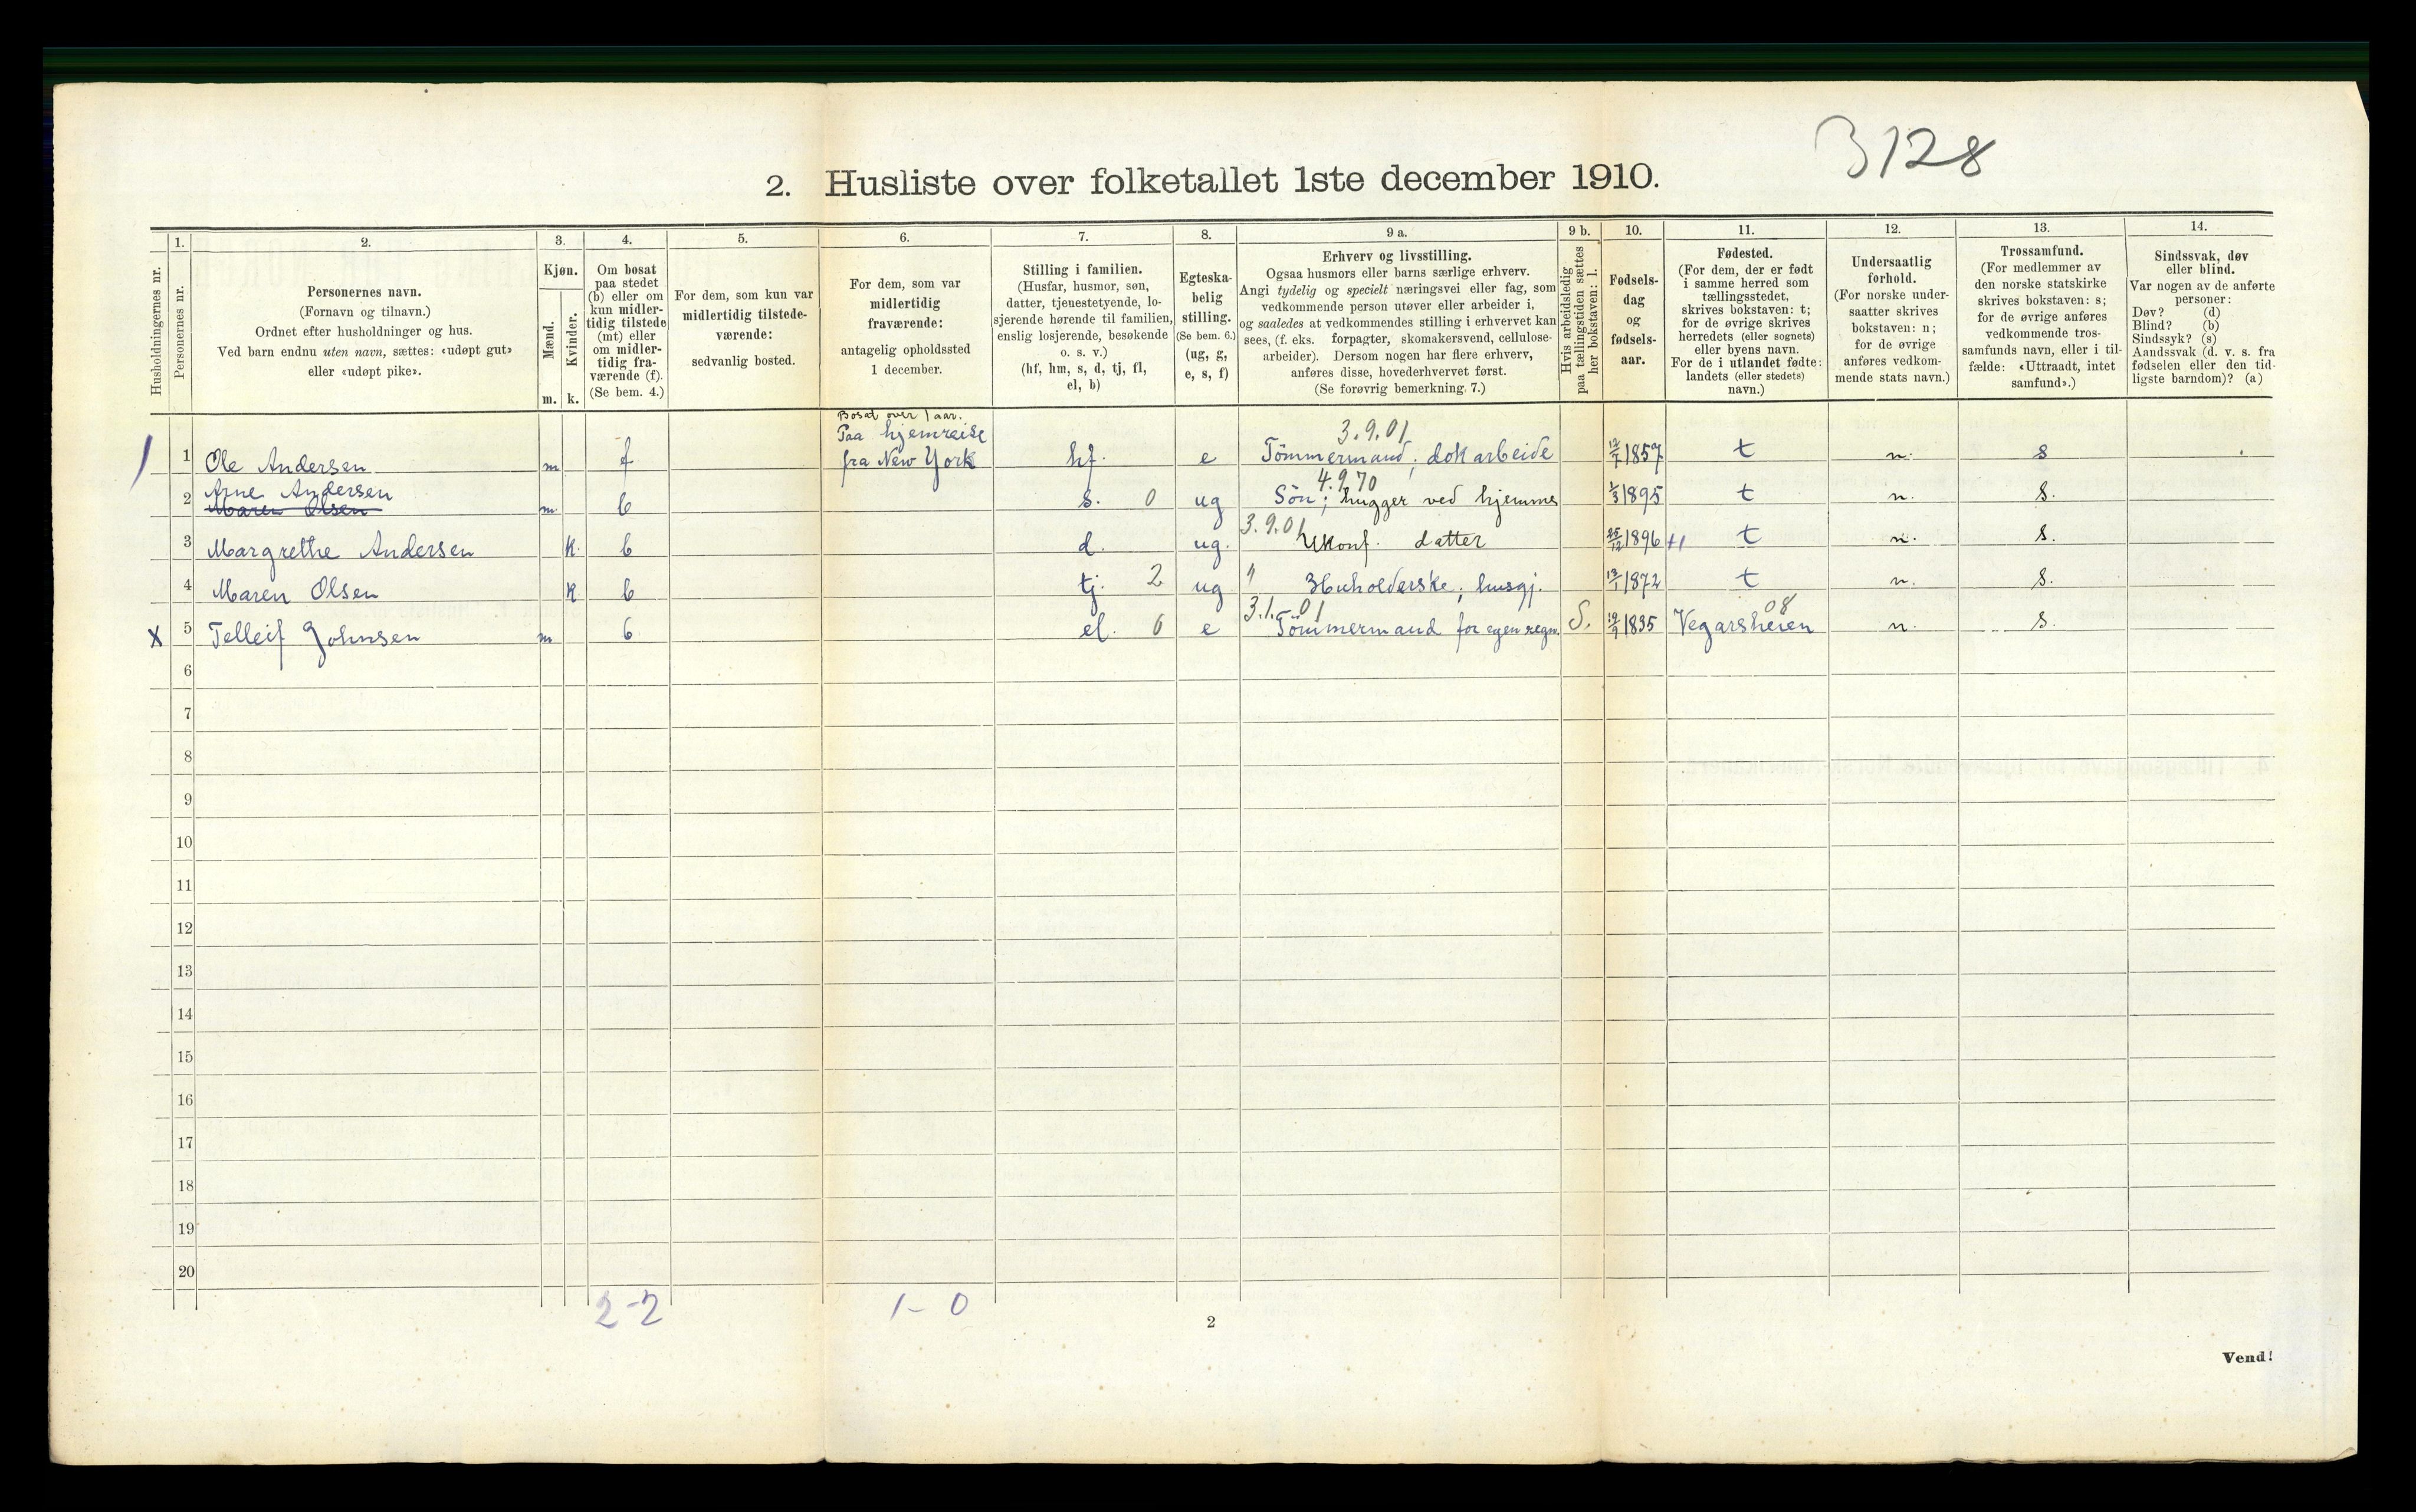 3128
2. Husliste over folketallet 1ste december 1910.
Husholdningernes nr.
1.
Personernes nr.
2.
Personernes navn.
(Fornavn og tilnavn.)
Ordnet efter husholdninger og hus.
Ved barn endnu uten navn, sættes: «udøpt gut»
eller «udøpt pike».
3.
Kjøn.
Mænd.
Kvinder.
m. k.
4.
Om bosat
paa stedet
(b) eller om
kun midler-
tidig tilstede
(mt) eller
om midler-
tidig fra-
værende (f).
(Se bem. 4.)
5.
For dem, som kun var
midlertidig tilstede-
værende:
sedvanlig bosted.
6.
For dem, som var
midlertidig
fraværende:
antagelig opholdssted
1 december.
7.
Stilling i familien.
(Husfar, husmor, søn,
datter, tjenestetyende, lo-
sjerende hørende til familien,
enslig losjerende, besøkende
o. s. v.)
(hf, hm, s, d, tj, fl,
el, b)
8.
Egteska-
belig
stilling.
(Se bem. 6.)
(ug, g,
e, s, f)
9 a.
Erhverv og livsstilling.
Ogsaa husmors eller barns særlige erhverv.
Angi tydelig og specielt næringsvei eller fag, som
vedkommende person utøver eller arbeider i,
og saaledes at vedkommendes stilling i erhvervet kan
sees, (f. eks. forpagter, skomakersvend, cellulose-
arbeider). Dersom nogen har flere erhverv,
anføres disse, hovederhvervet først.
(Se forøvrig bemerkning 7.)
9 b.
Hvis arbeidsledig
paa tællingstiden sættes
her bokstaven: l.
10.
Fødsels-
dag
og
fødsels-
aar.
11.
Fødested.
(For dem, der er født
i samme herred som
tællingsstedet,
skrives bokstaven: t;
for de øvrige skrives
herredets (eller sognets)
eller byens navn.
For de i utlandet fødte:
landets (eller stedets)
navn.)
12.
Undersaatlig
forhold.
(For norske under-
saatter skrives
bokstaven: n;
for de øvrige
anføres vedkom-
mende stats navn.)
13.
Trossamfund.
(For medlemmer av
den norske statskirke
skrives bokstaven: s;
for de øvrige anføres
vedkommende tros-
samfunds navn, eller i til-
fælde: «Uttraadt, intet
samfund».)
14.
Sindssvak, døv
eller blind.
Var nogen av de anførte
personer:
Døv? (d)
Blind? (b)
Sindssyk? (s)
Aandssvak (d. v. s. fra
fødselen eller den tid-
ligste barndom)? (a)
Bosat over 1 aar.
Paa hjemreise
3.9.01
1 Ole Andersen m f fra New York hf. e Tömmermand; dokarbeide 12/7 1857 t n. s
Arne Andersen
4.9.70
2 Maren Olsen m b s. 0 ug Sön; hugger ved hjemme 1/3 1895 t n. s.
3.9.01
3 Margrethe Andersen k. b d. ug. Ukonf. datter 25/12 1896 t n. s.
4 Maren Olsen k b tj. 2 ug " Husholderske; husgj. 13/1 1872 t n. s.
3.1.01 08
x 5 Telleif Johnsen m b el. 6 e Tömmermand for egen regn. S. 1835 Vegarsheien n. s.
6
7
8
9
10
11
12
13
14
15
16
17
18
19
20
2-2 1-0
2
Vend!